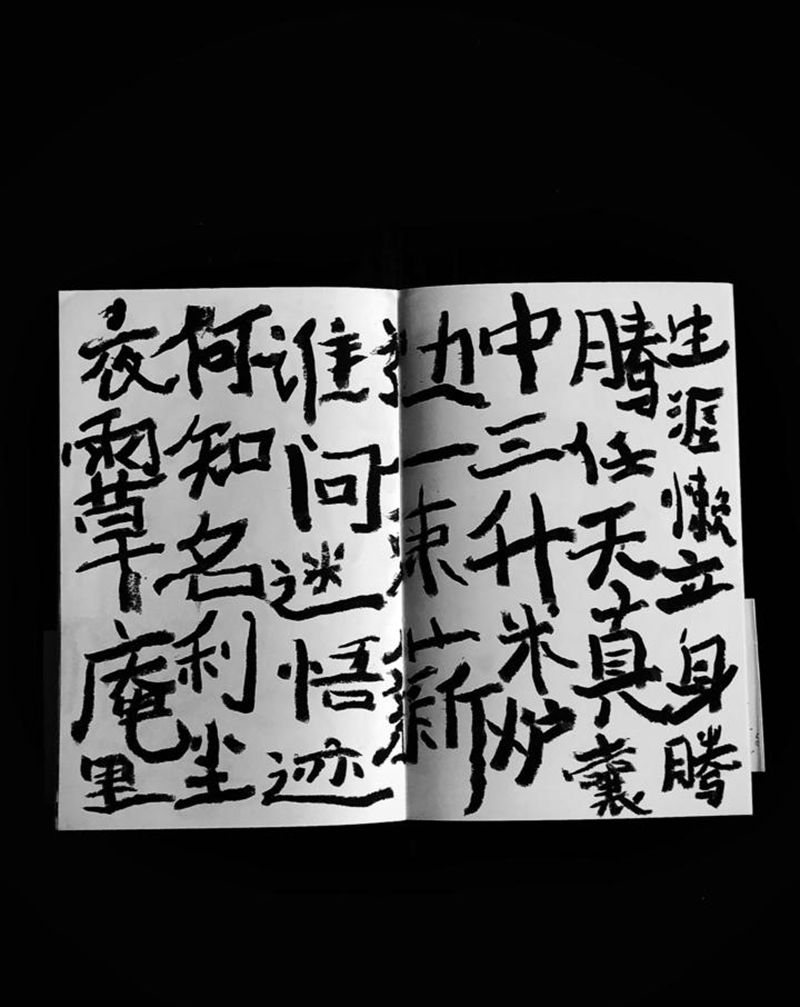 生涯懒立身腾
腾任天真囊
中三升米炉
边一束薪
谁问迷悟迹
何知名利尘
夜雨草庵里